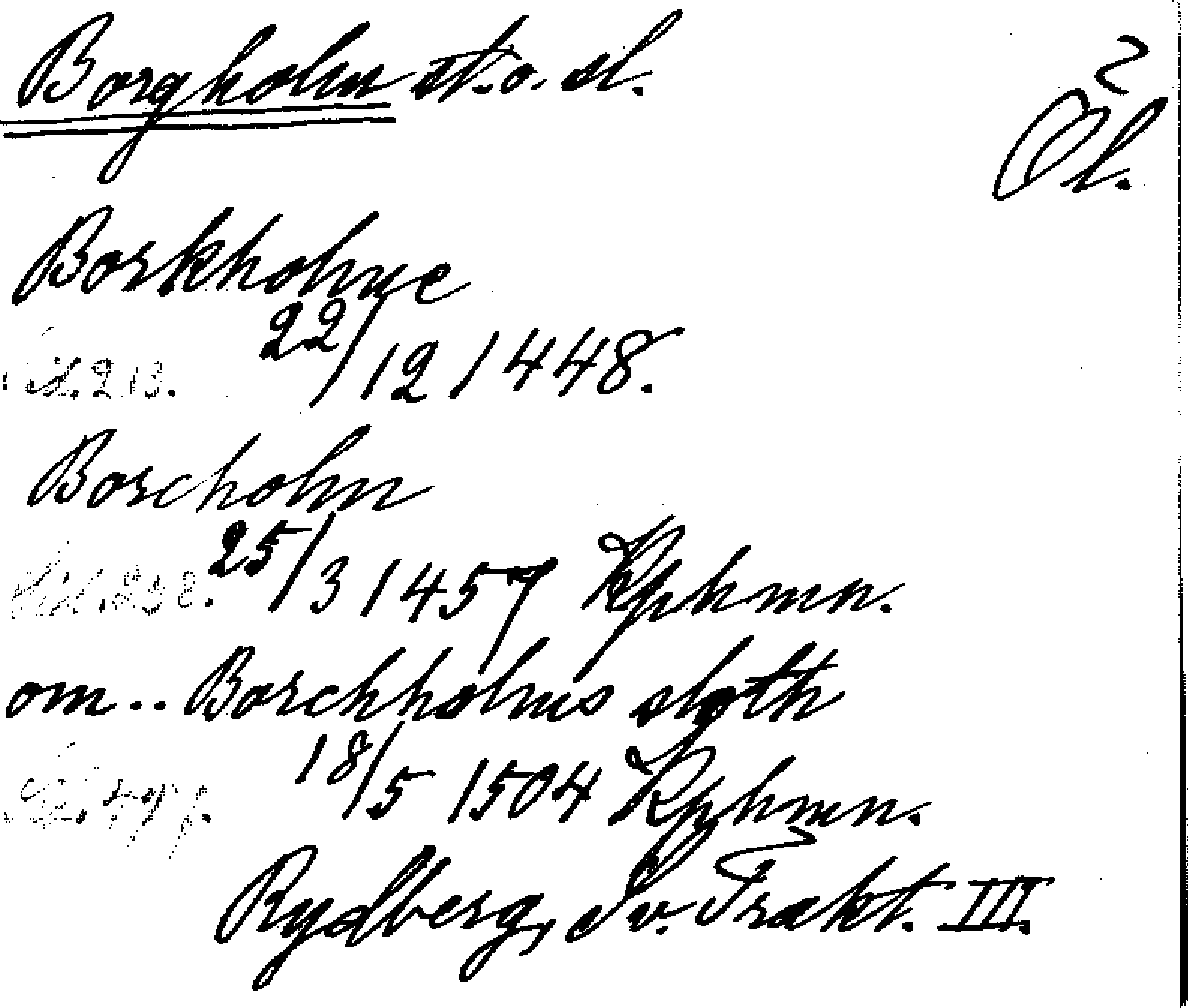 Borgholm st. o. sl.
Öl.
Borkholme
22/12 1448.
Borcholm
25/3 1457 Kphmn.
om.. Borchholms sloth
18/5 1504 Kphmn.
Rydberg, Sv. Trakt. III.